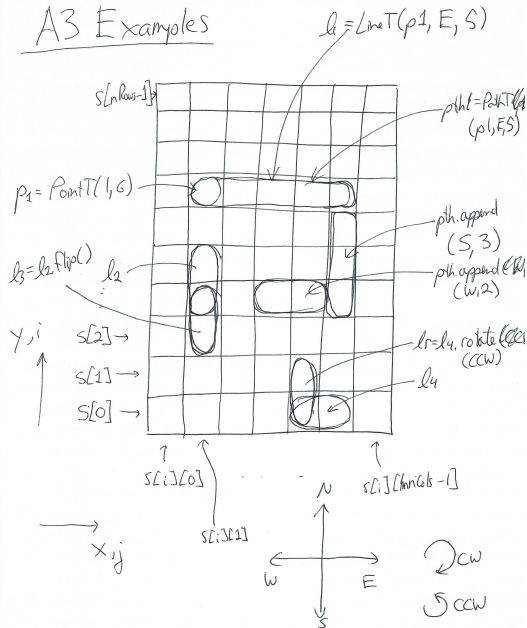 A3 Examples
l1 = LineT(p1, E, 5)
S[nRows-1]
pth1 = PathT
(p1, E, 5)
p1 = PointT(1, 6)
pth.append
(S, 3)
l3 = l2.flip()
l2
pth.append
(W, 2)
y, i
S[2] →
l5 = l4.rotate
(CCW)
S[1] →
l4
S[0] →
S[i][0]
S[i][1]
. . . .
S[i][nCols-1]
x, j
N
W
E
S
CW
CCW